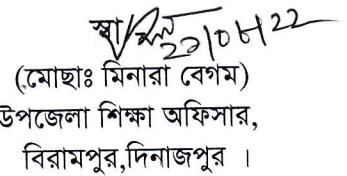 স্বা/
22/06/22
(মোছাঃ মিনারা বেগম)
উপজেলা শিক্ষা অফিসার,
বিরামপুর,দিনাজপুর ।